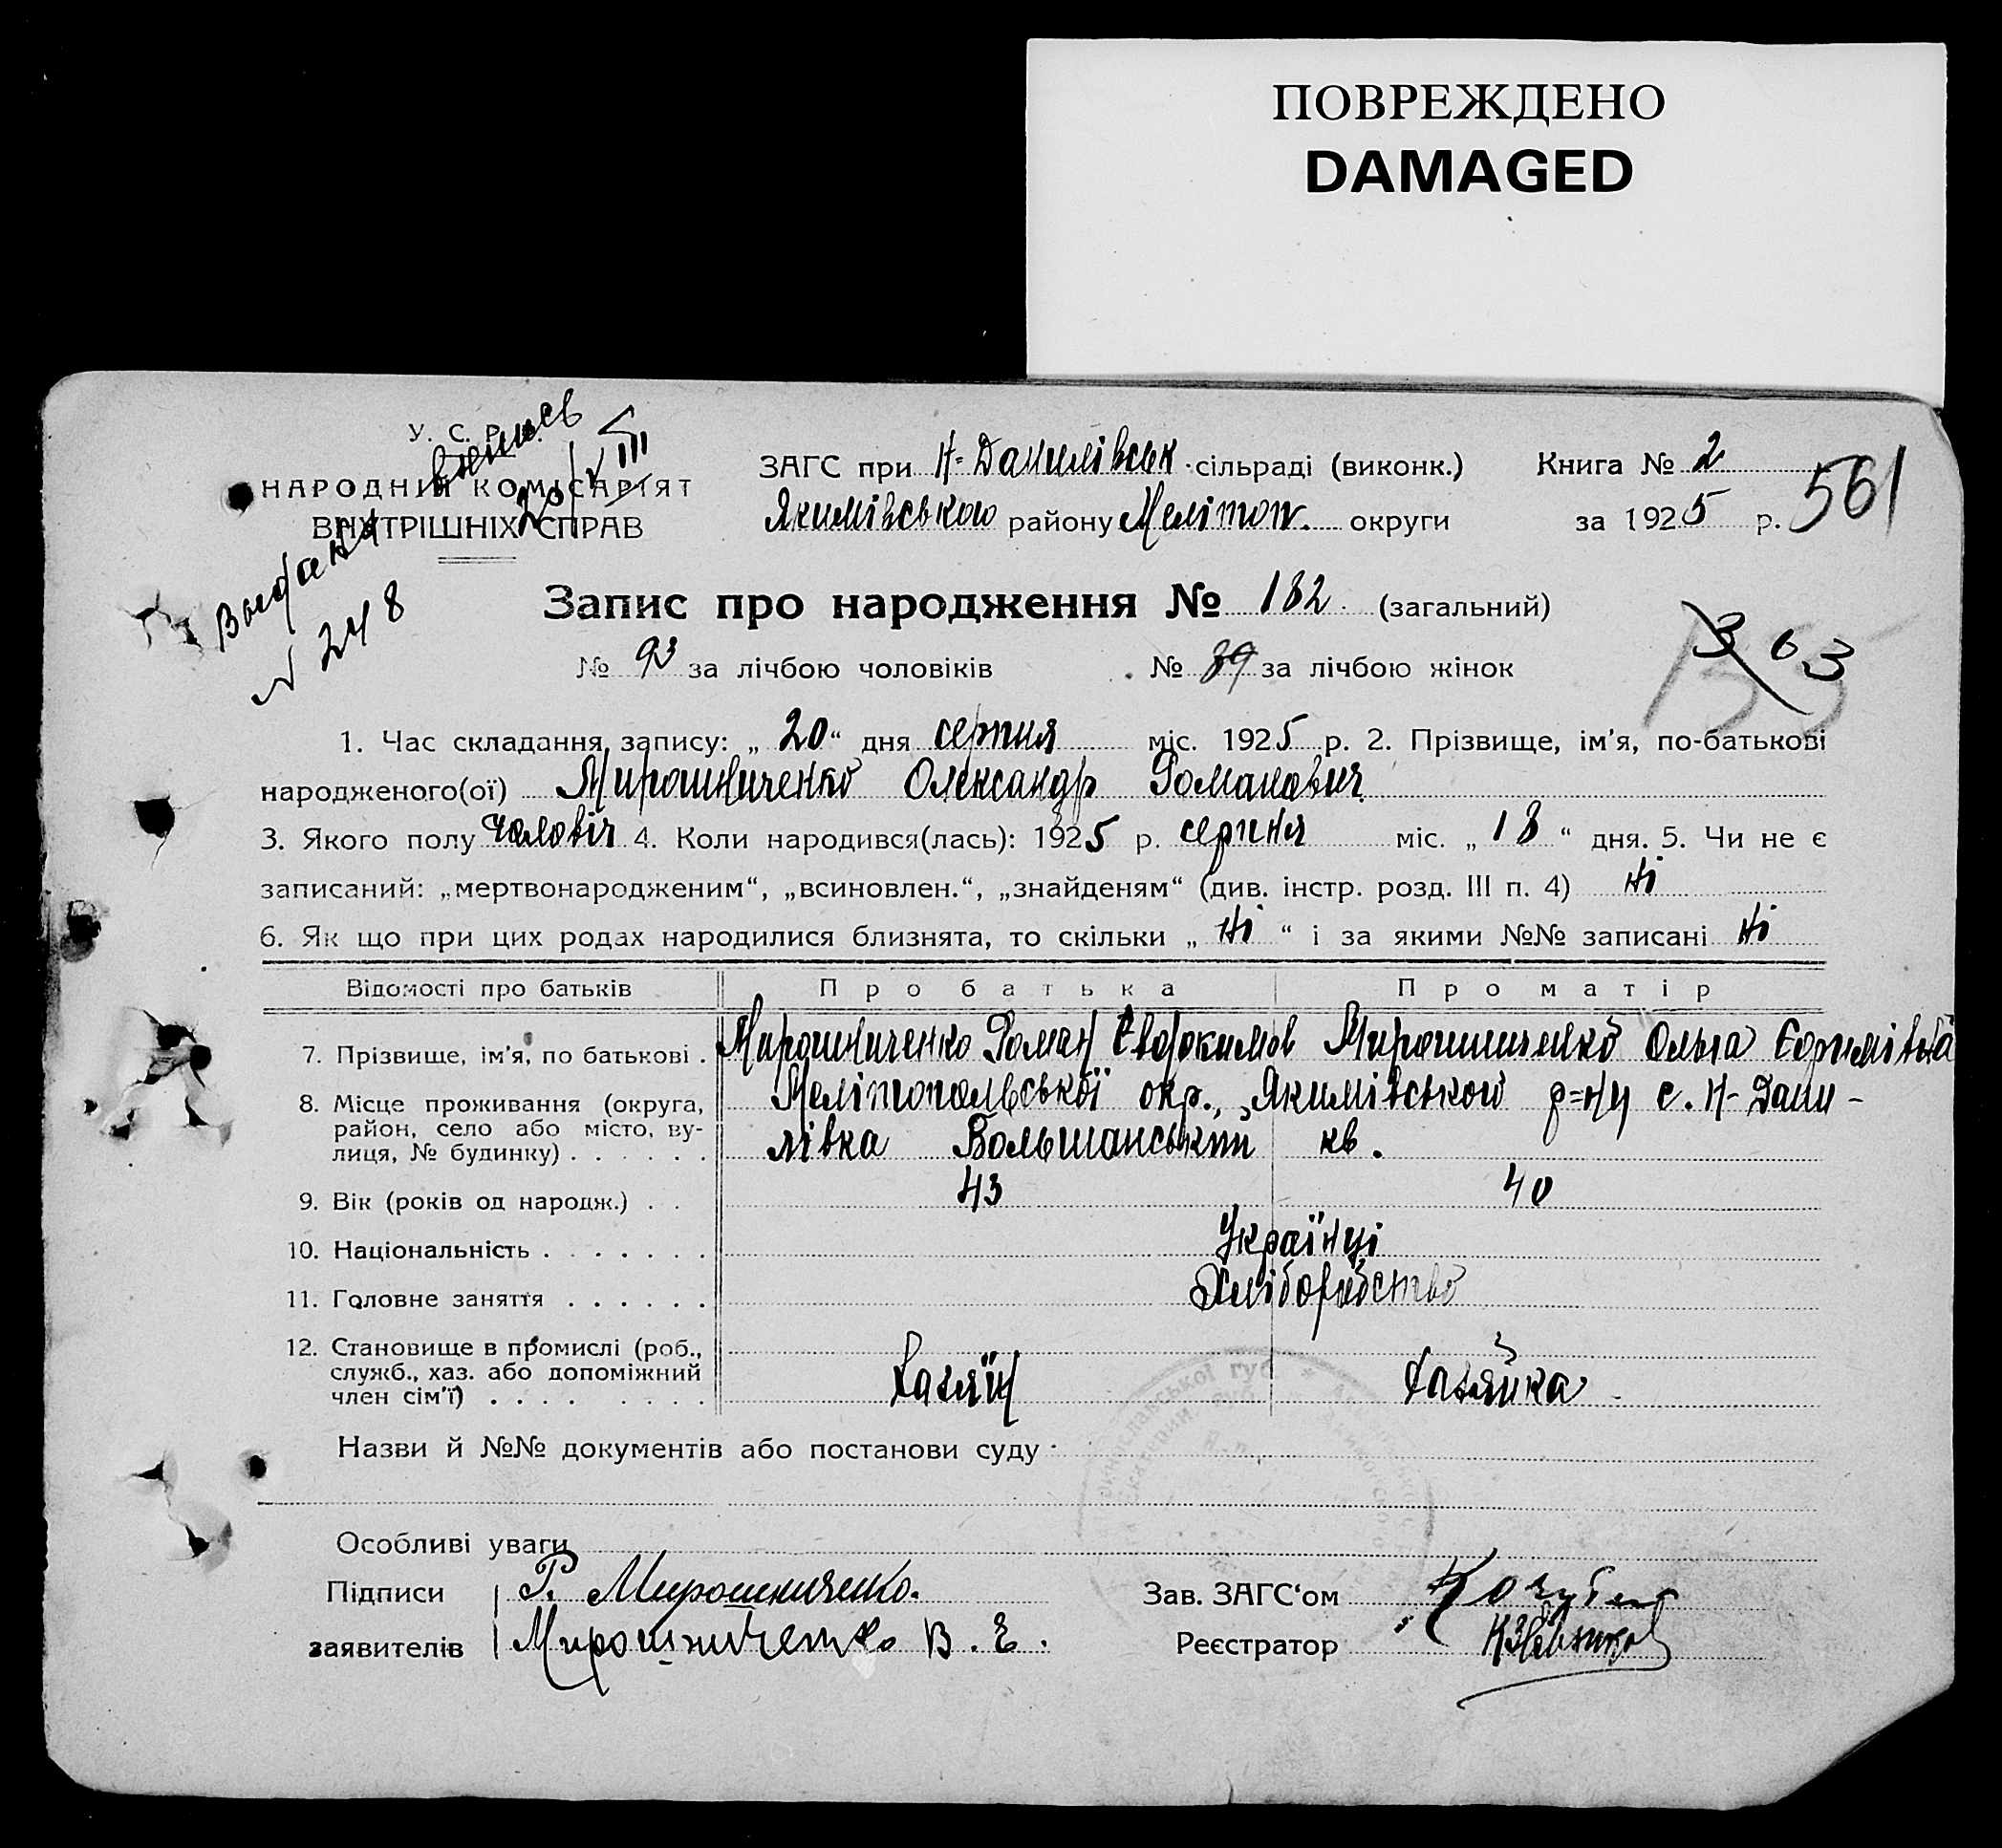 ПОВРЕЖДЕНО
DAMAGED
У. С. Р. Р.
НАРОДНІЙ КОМІСАРІЯТ
ВНУТРІШНІХ СПРАВ
Выдана выпись
№ 248
ЗАГС при Н-Данилівськ. сільраді (виконк.) Книга № 2
Якимівського району Мелітоп. округи за 1925 р. 561
Запис про народження № 182. (загальний)
363
№ 93 за лічбою чоловіків № 89 за лічбою жінок
1. Час складання запису: „ 20 “ дня серпня міс. 1925 р. 2. Прізвище, ім'я, по-батькові
народженого(ої) Мирошниченко Олександр Романович
3. Якого полу чоловіч 4. Коли народився(лась): 1925 р. серпня міс. „ 18 “ дня. 5. Чи не є
записаний: „мертвонародженим“, „всиновлен.“, „знайденям“ (див. інстр. розд. III п. 4) ні
6. Як що при цих родах народилися близнята, то скільки „ ні “ і за якими №№ записані ні
Відомості про батьків Про батька Про матір
7. Прізвище, ім'я, по батькові . Мирошниченко Роман Євдокимов Мирошниченко Ольга Єфимівна
8. Місце проживання (округа, Мелітопольської окр., Якимівського р=ну с. Н- Дани-
район, село або місто, ву-
лиця, № будинку) . . . . . . лівка Вольшанський кв.
9. Вік (років од народж.) . . 43 40
10. Національність . . . . . . . Українці
11. Головне заняття . . . . . . Хліборобство
12. Становище в промислі (роб.,
служб., хаз. або допоміжний
член сім'ї) . . . . . . . . Хазяїн Хазяйка
Назви й №№ документів або постанови суду
Особливі уваги
Підписи Р. Мирошниченко. Зав. ЗАГС‘ом
заявителів Мирошниченко В. Е. Реєстратор